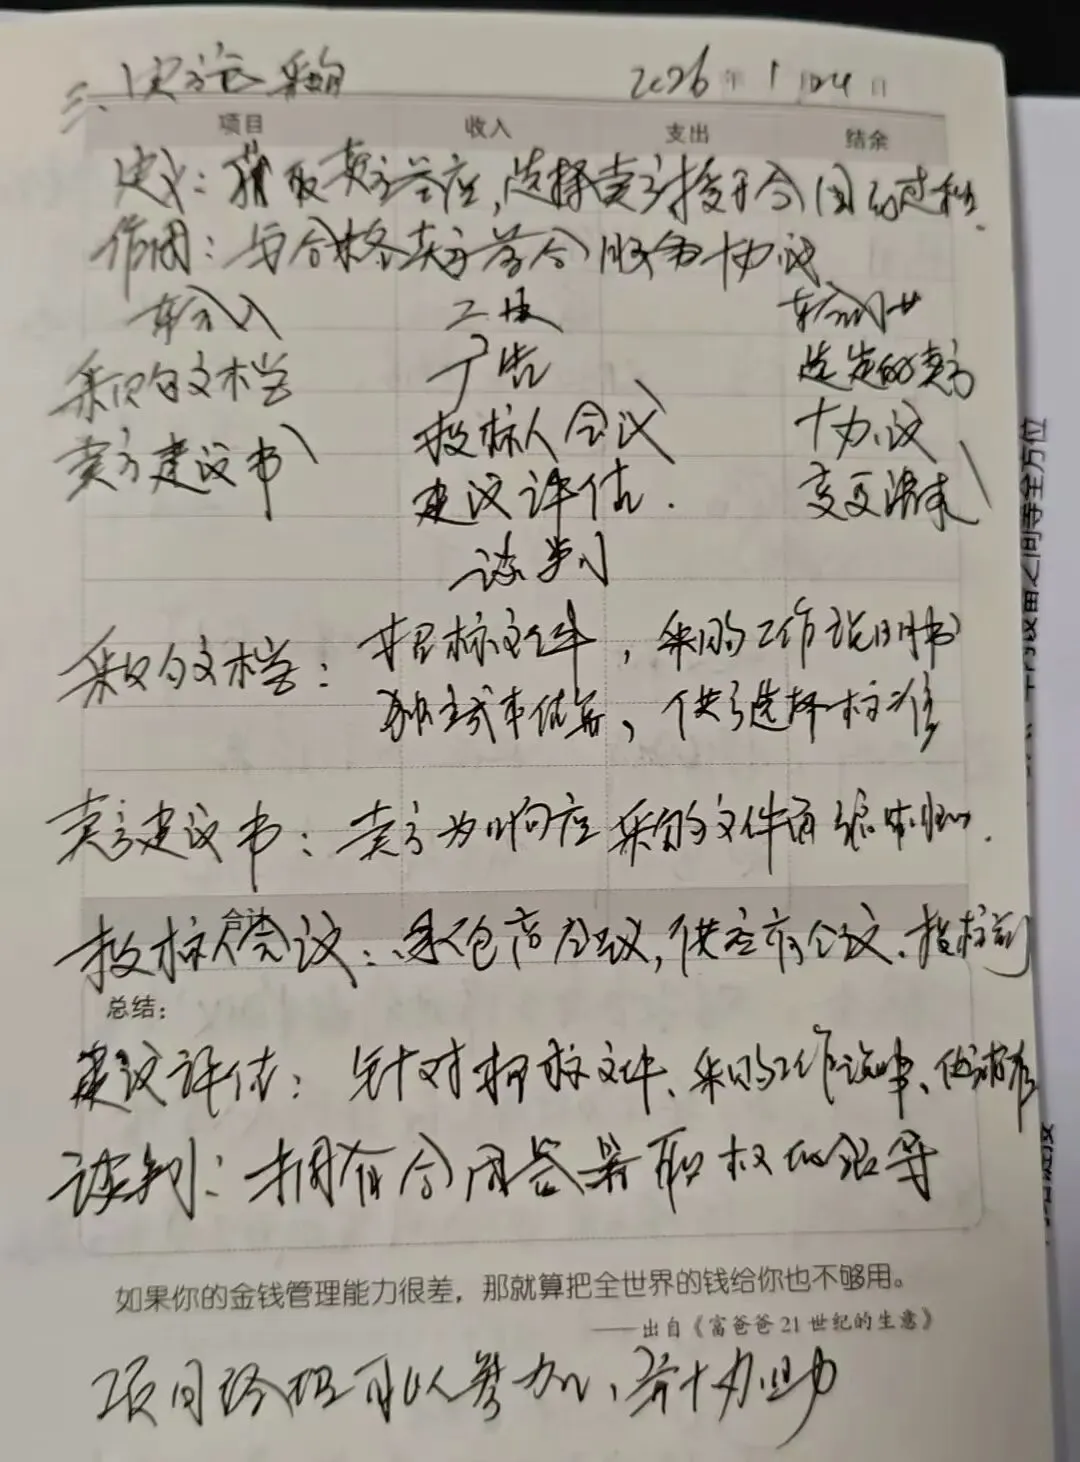 三、实施采购 2026年1月24日
项目 收入 支出 结余
定义：获取卖方答应,选择卖方授予合同的过程.
作用：与合格卖方签合服务协议
输入 工具 输出
采购文档 广告 选定的卖方
卖方建议书 投标人会议 协议
建议评估. 变更请求
谈判
采购文档： 招标文件，采购工作说明书
独立成本估算、供方选择标准
卖方建议书：卖方为响应采购文件而编制的.
合计
投标人会议：承包商会议,供应商会议、投标前
总结：
建议评估：针对招标文件、采购工作说明书、供选标准
谈判：拥有合同签署职权的领导
如果你的金钱管理能力很差，那就算把全世界的钱给你也不够用。
——出自《富爸爸21世纪的生意》
项目经理可以参加、并协助